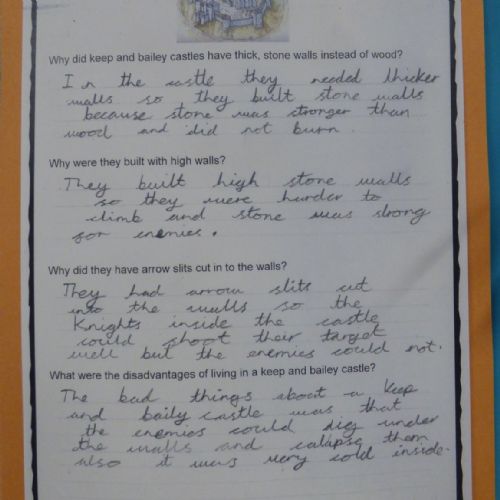 Why did keep and bailey castles have thick, stone walls instead of wood?
In the castle they needed thicker
walls so they built stone walls
because stone was stronger than
wood and did not burn.
Why were they built with high walls?
They built high stone walls
so they were harder to
climb and stone was strong
for enemies.
Why did they have arrow slits cut in to the walls?
They had arrow slits cut
into the walls so the
Knights inside the castle
could shoot their target
well but the enemies could not.
What were the disadvantages of living in a keep and bailey castle?
The bad things about a keep
and baily castle was that
the enemies could dig under
the walls and calapse them
also it was very cold inside.